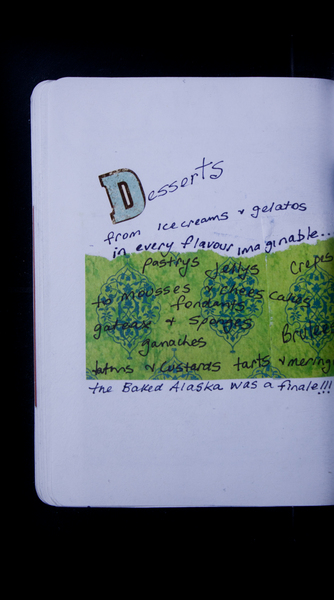 Desserts
from icecreams & gelatos
in every flavour imaginable...
pastrys jellys crepes
to mousses & cheescakes
fondants
gateaux & sponges
ganaches Brulees
& custards tarts & mering
the Baked Alaska was a finale!!!